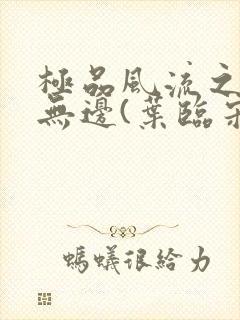 極品風流之
無邊(葉臨
螞蟻很給力